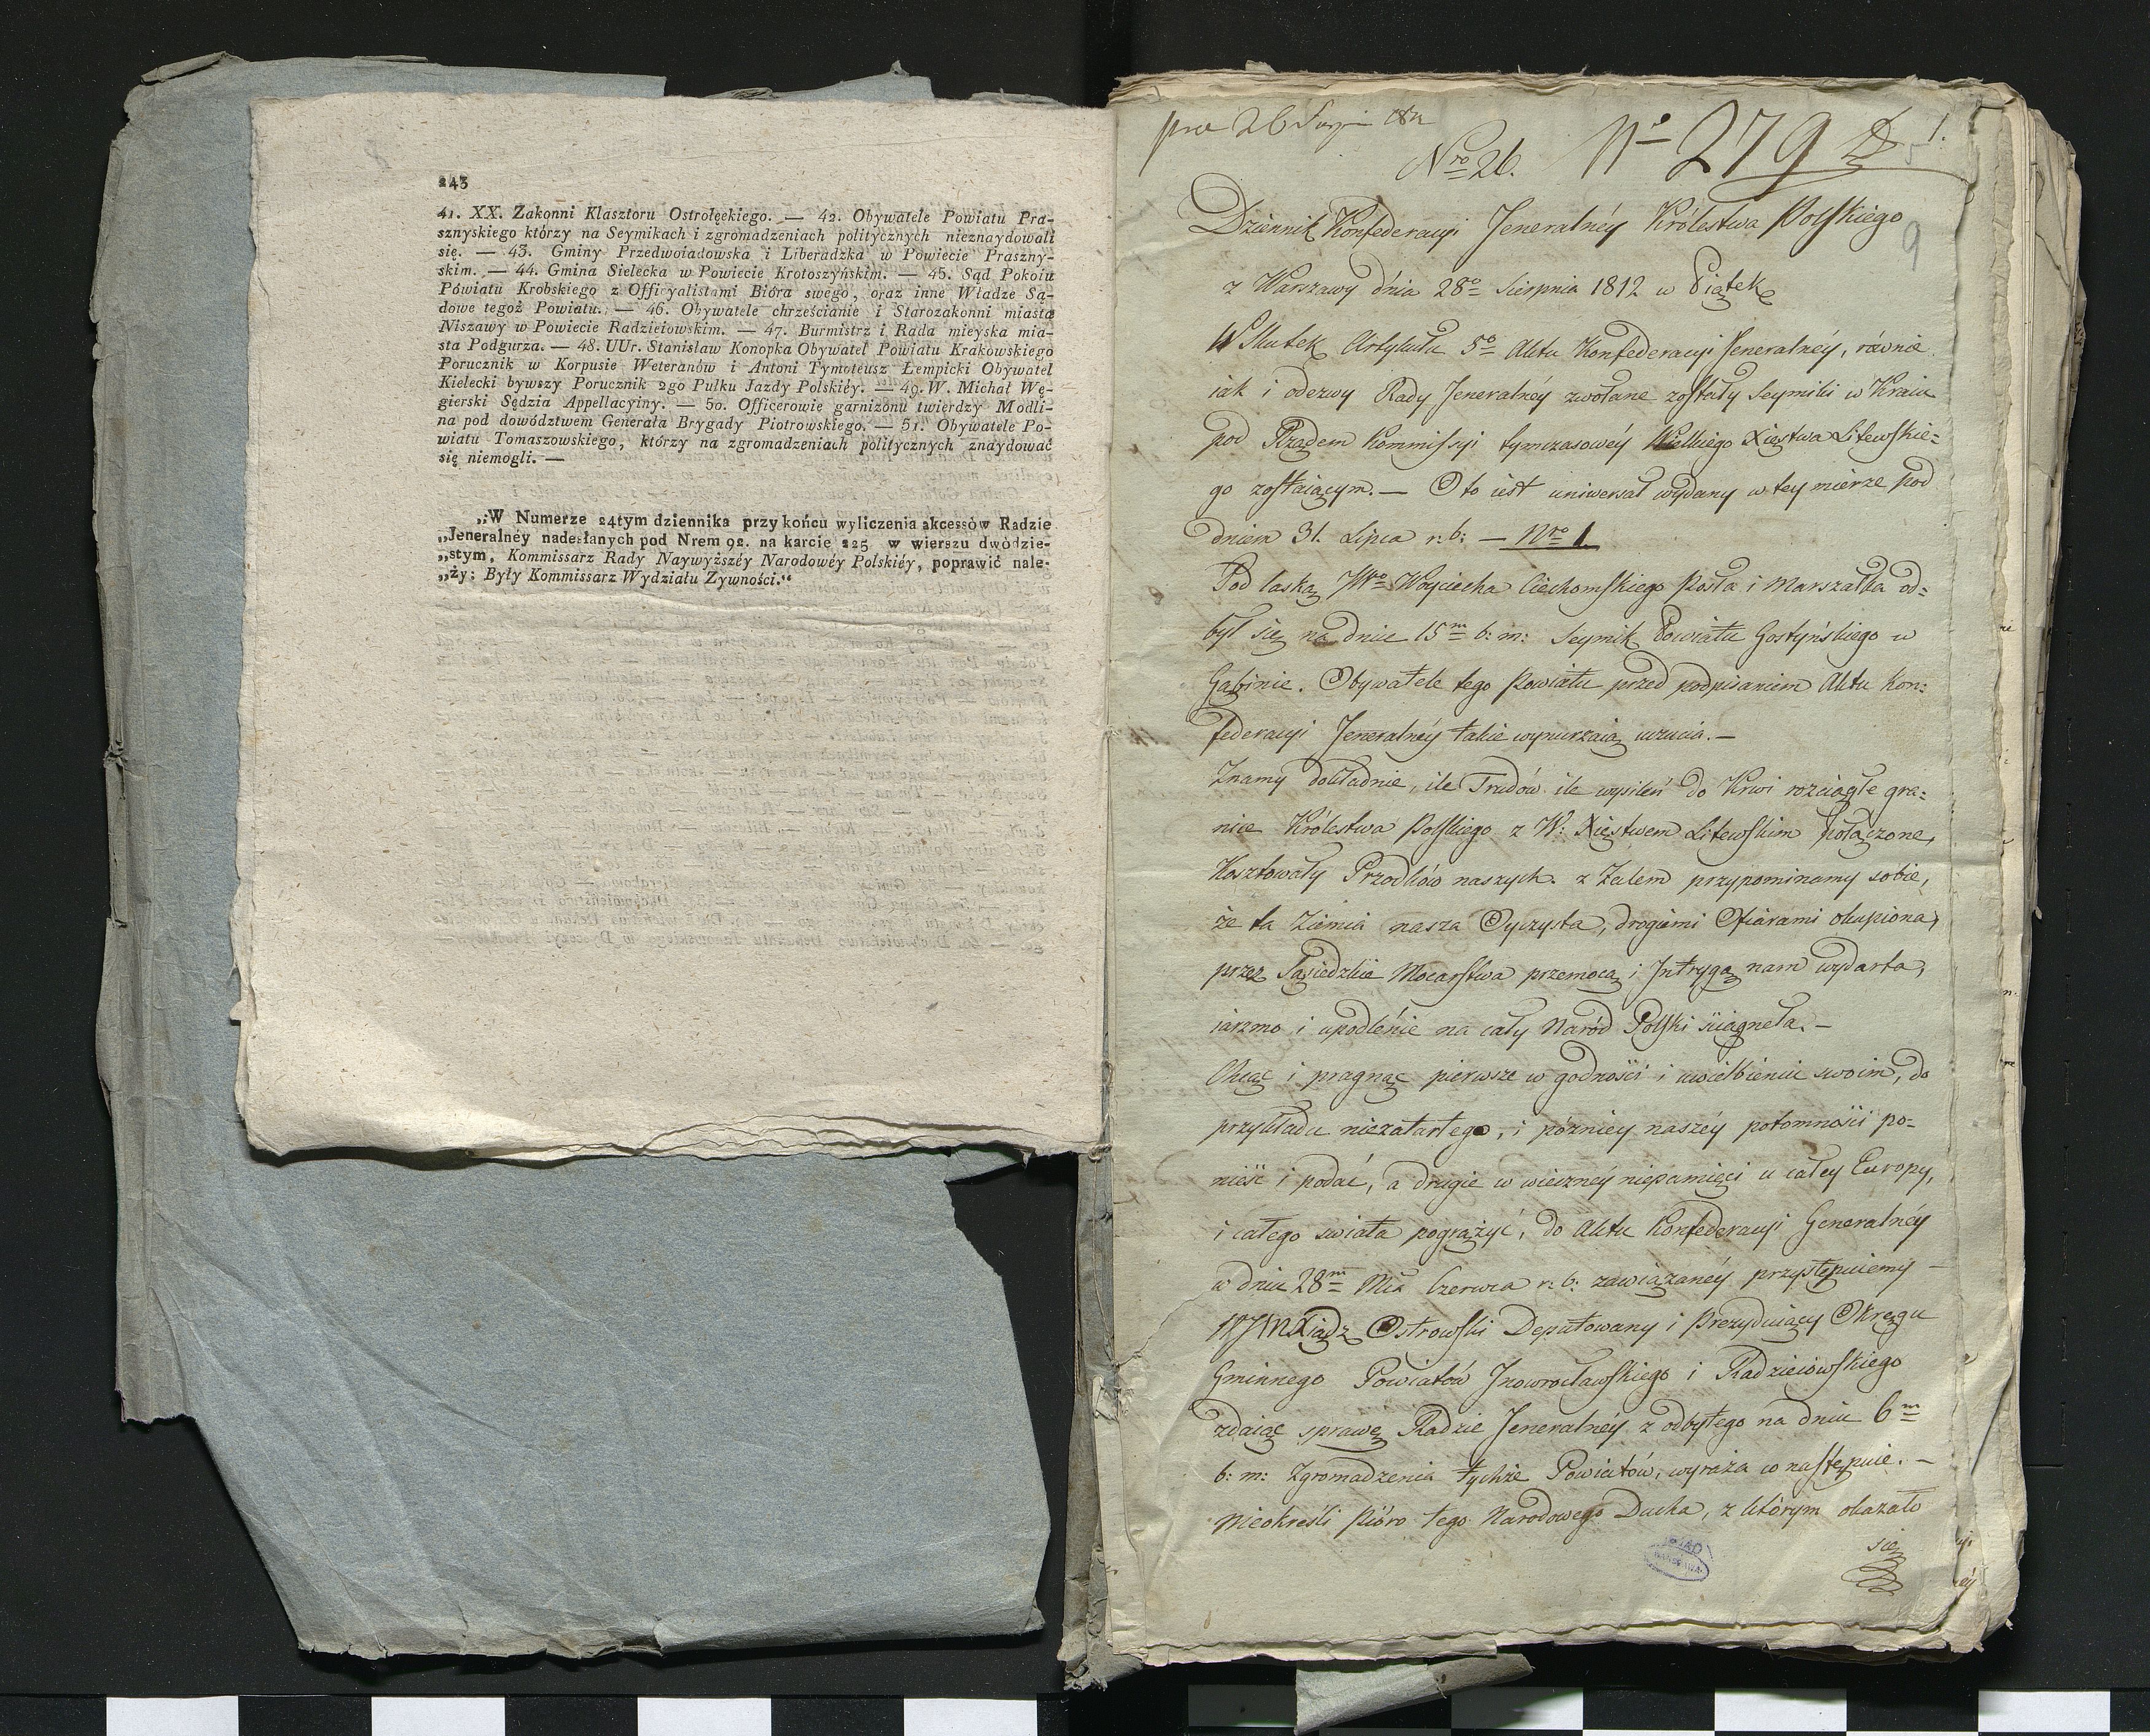 243
41. XX. Zakonni Klasztoru Ostrołęckiego. — 42. Obywatele Powiatu Pra-
sznyskiego którzy na Seymikach i zgromadzeniach politycznych nieznaydowali
się. — 43. Gminy Przedwoiadowska i Liberadzka w Powiecie Praszny-
skim. — 44. Gmina Sielecka w Powiecie Krotoszyńskim. — 45. Sąd Pokoiu
Powiatu Krobskiego z Officyalistami Bióra swego, oraz inne Władze Są-
dowe tegoż Powiatu. — 46. Obywatele chrześcianie i Starozakonni miasta
Niszawy w Powiecie Radzieiowskim. — 47. Burmistrz i Rada mieyska mia-
sta Podgurza. — 48. UUr. Stanisław Konopka Obywatel Powiatu Krakowskiego
Porucznik w Korpusie Weteranów i Antoni Tymoteusz Łempicki Obywatel
Kielecki bywszy Porucznik 2go Pułku Jazdy Polskiéy. — 49. W. Michał Wę-
gierski Sędzia Appellacyiny. — 50. Officerowie garnizonu twierdzy Modli-
na pod dowództwem Generała Brygady Piotrowskiego. — 51. Obywatele Po-
wiatu Tomaszowskiego, którzy na zgromadzeniach politycznych znaydować
się niemogli. —
„W Numerze 24tym dziennika przy końcu wyliczenia akcessów Radzie
„Jeneralnéy nadesłanych pod Nrem 92. na karcie 225 w wierszu dwódzie-
„stym, Kommissarz Rady Naywyższéy Narodowéy Polskiéy, poprawić nale-
„ży: Były Kommissarz Wydziału Zywności.“
Nro 26. No 279 1.
9
Dziennik Konfederacyi Jeneralnéy Królestwa Polskiego
z Warszawy dnia 28o Sierpnia 1812 w Piątek
W Skutek Artykułu 5o Aktu Konfederacyi Jeneralnéy, równie
iak i odezwy Rady Jeneralnéy zwołane zostały Seymiki w Kraiu
pod Rządem Kommissyi tymczasowéy Wielkiego Xięstwa Litewskie=
go zostaiącym. — Oto iest uniwersał wydany w tey mierze pod
dniem 31. Lipca r. b: — Nro 1.
Pod laską JWo Woyciecha Ciechomskiego Posła i Marszałka od=
był się na dniu 15m b: m: Seymik Powiatu Gostyńskiego w
Gąbinie. Obywatele tego Powiatu przed podpisaniem Aktu Kon:
federacyi Jeneralnéy takie wynurzaią uczucia. —
Znamy dokładnie, ile Trudów ile wysileń do Krwi rozciągłe gra=
nice Królestwa Polskiego z W: Xięstwem Litewskim połączone,
Kosztowały Przodków naszych. z Żalem przypominamy sobie,
że ta Ziemia nasza Oyczysta, drogiemi Ofiarami okupiona,
przez Sąsiedzkie Mocarstwa przemocą i Intrygą nam wydarta,
iarzmo i upodlenie na cały Naród Polski sciągneła. —
Chcąc i pragnąc pierwsze w godności i uwielbieniu swoim, do
przykładu niezatartego, i późniey naszéy potomności po=
nieść i podać, a drugie w wieczney niepamięci u całey Europy,
i całego swiata pogrążyć, do Aktu Konfederacyi Generalnéy
w dniu 28m Mca Czerwca r: b: zawiązanéy przystępuiemy —
Xiądz Ostrowski Deputowany i Prezyduiący Okręgu
Gminnego Powiatów Inowrocławskiego i Radzieiowskiego
zdaiąc sprawę Radzie Jeneralnéy z odbytego na dniu 6m
b: m: Zgromadzenia tychże Powiatów, wyraża co następuie. —
Nieokreśli Pióro tego Narodowego Ducha, z którym okazało
się